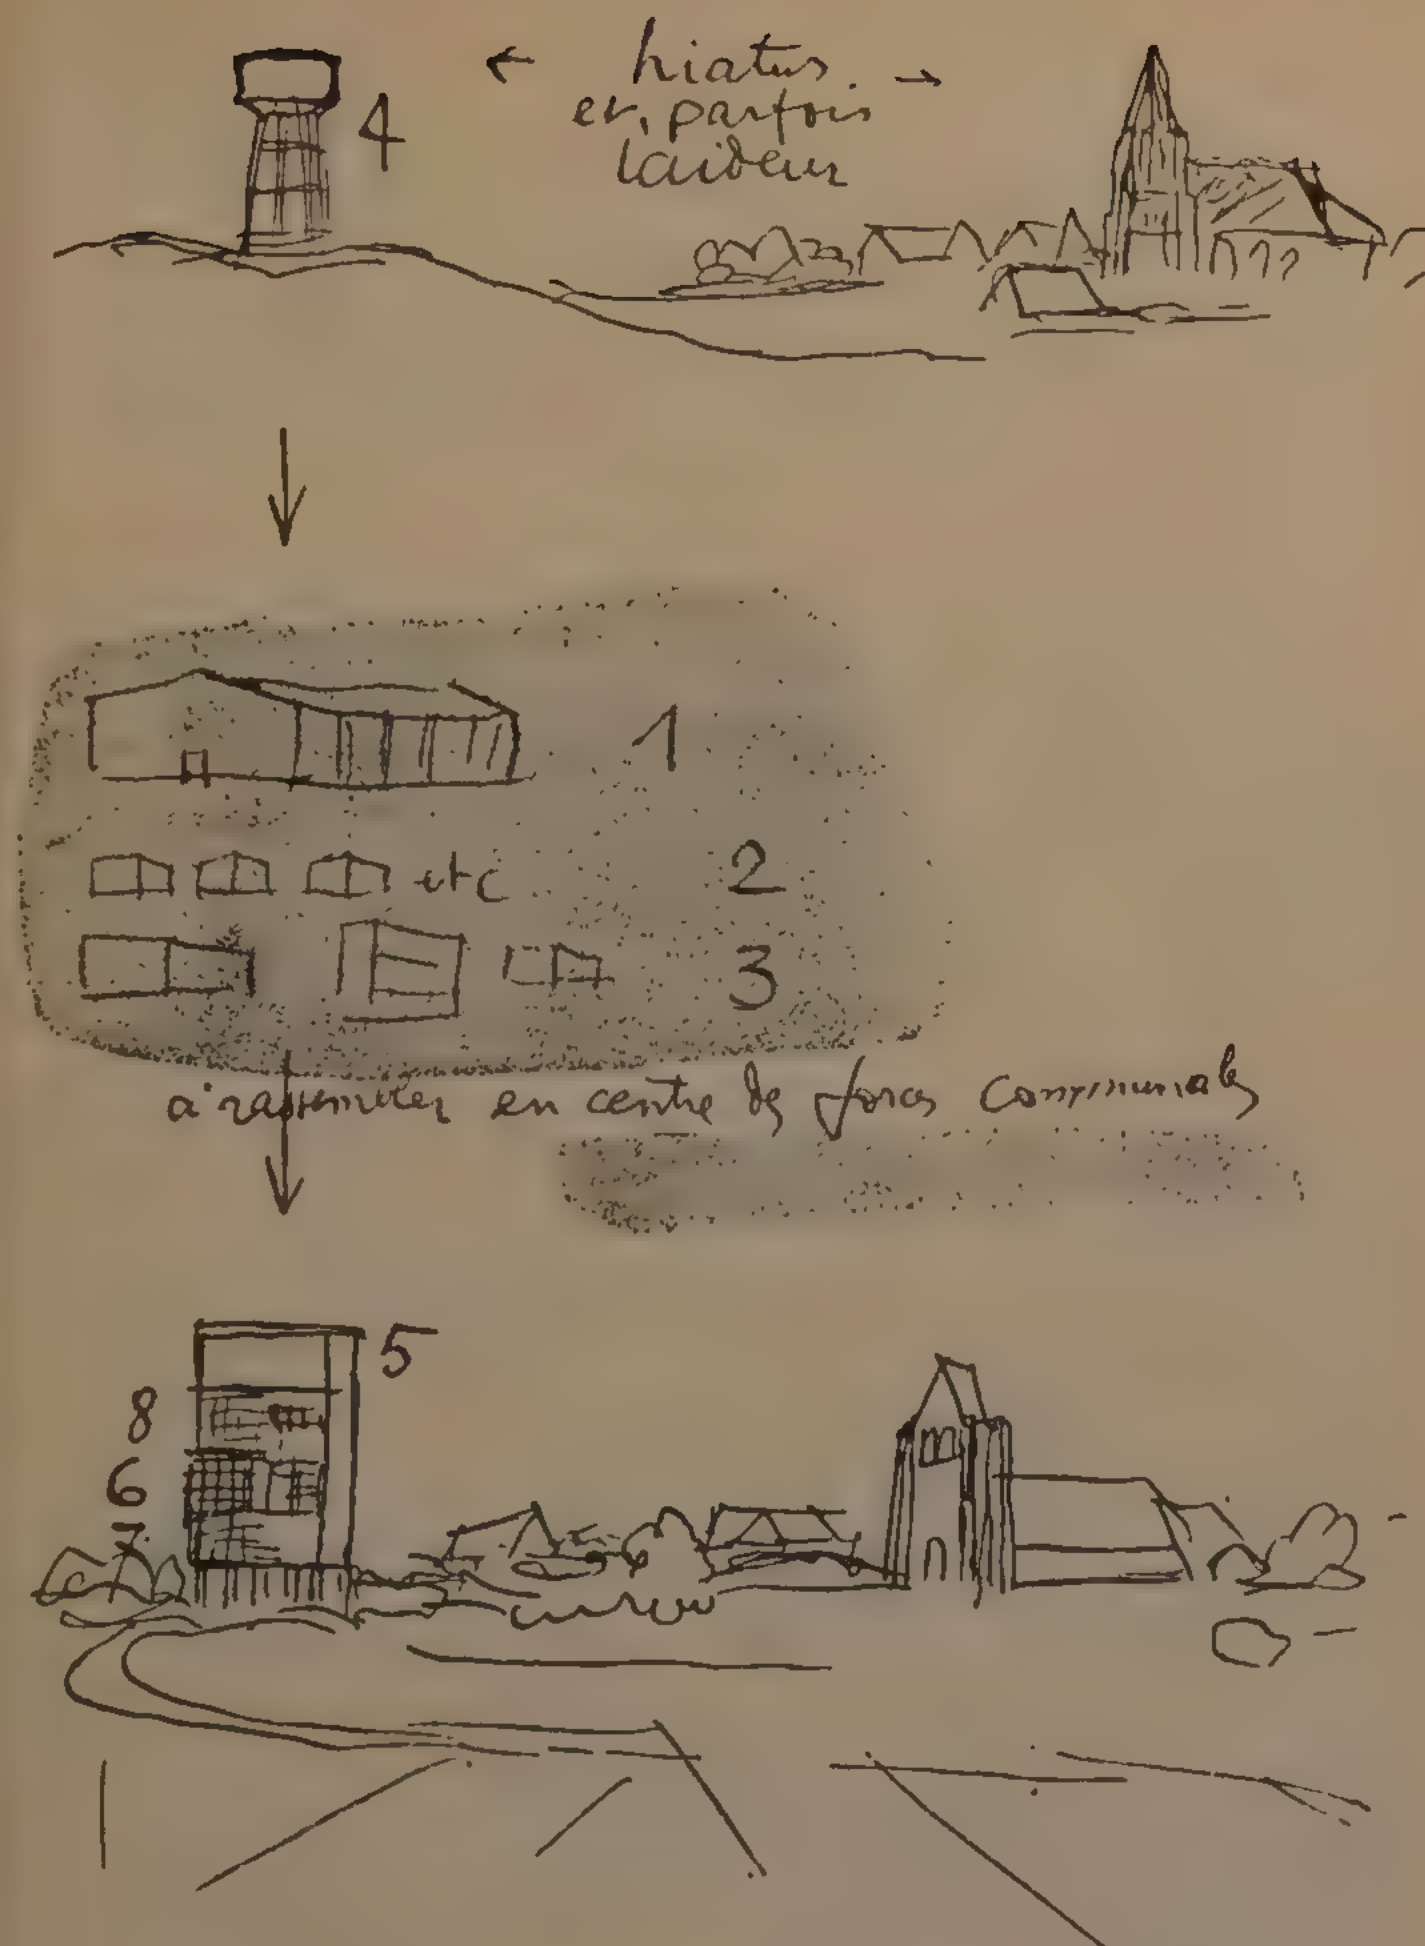 ← hiatus →
4
et, parfois
laideur
1
etc 2
3
à rassembler en centre de forces communales
5
8
6
7